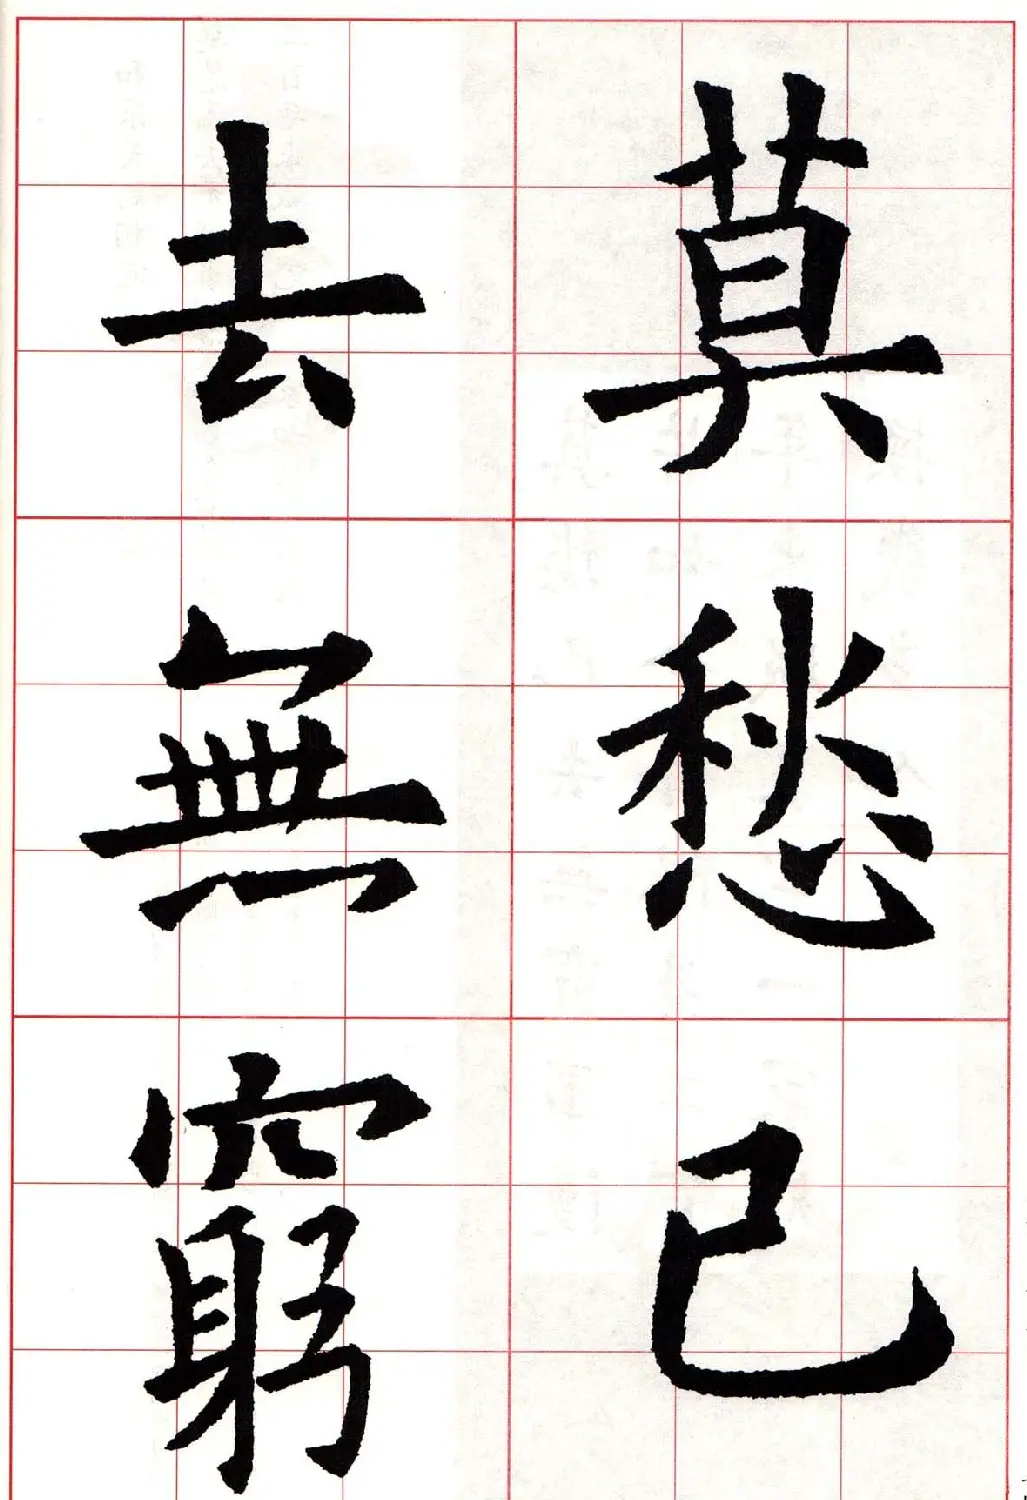 莫愁己
去無窮